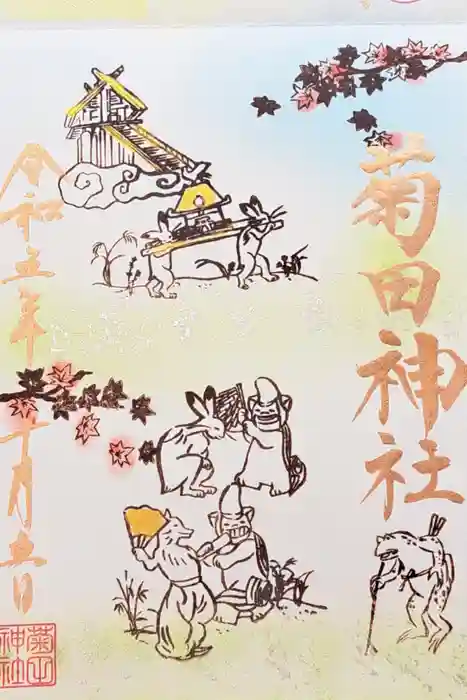 菊田神社
令和五年
十月五日
菊田
神社